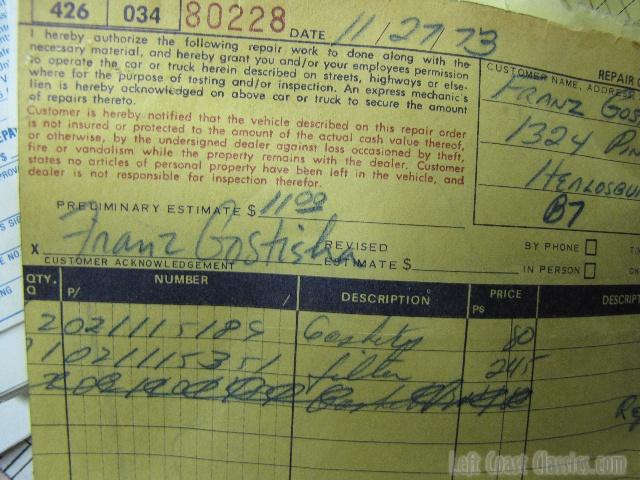 426 034 80228 DATE 11/27/73
I hereby authorize the following repair work to done along with the
necessary material, and hereby grant you and/or your employees permission
to operate the car or truck herein described on streets, highways or else-
where for the purpose of testing and/or inspection. An express mechanic's
lien is hereby acknowledged on above car or truck to secure the amount
of repairs thereto.
Customer is hereby notified that the vehicle described on this repair order
is not insured or protected to the amount of the actual cash value thereof,
or otherwise, by the undersigned dealer against loss occasioned by theft,
fire or vandalism while the property remains with the dealer. Customer
states no articles of personal property have been left in the vehicle, and
dealer is not responsible for inspection therefor.
REPAIR
CUSTOMER NAME, ADDRESS
FRANZ
1324
B7
PRELIMINARY ESTIMATE $ 11.00
X Franz
CUSTOMER ACKNOWLEDGEMENT
REVISED
ESTIMATE $
BY PHONE
IN PERSON
QTY. NUMBER DESCRIPTION PRICE
Q P/ / Ps
2 021115189 Gaskets 80
1 021115351 filter 245
Left Coast Classics.com